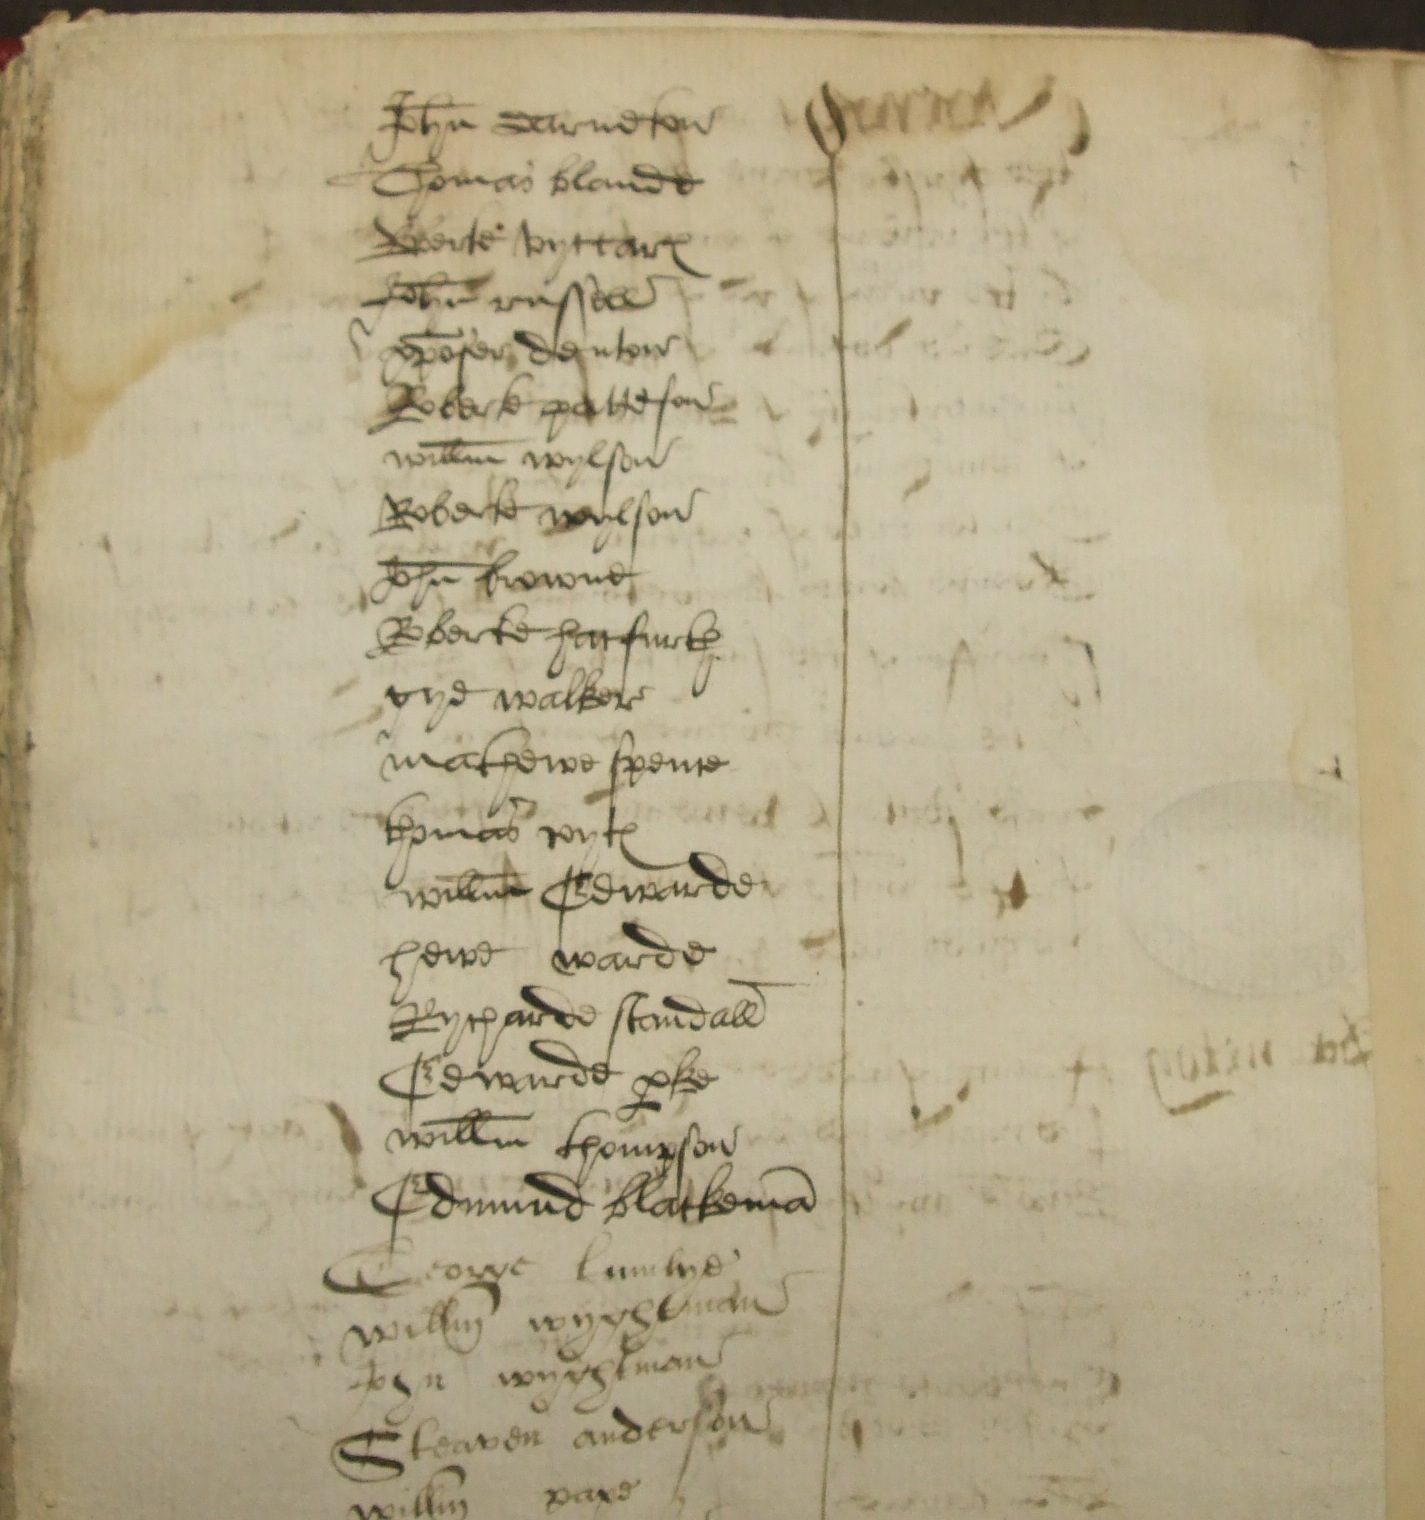 John Darneton
Thomas blande
Roberte vyccars
John russell
xpofer denton
Roberte patteson
willm wylson
Roberte wylson
John browne
Roberte hatfurth
walker
mathewe spence
thomas wyth
willm Edwarde
hewe warde
Rycharde standall
Edwarde pke
willm thompson
Edmund blakeman
George lumlye
willm wyghtman
John wyghtman
Steaven anderson
willm pape